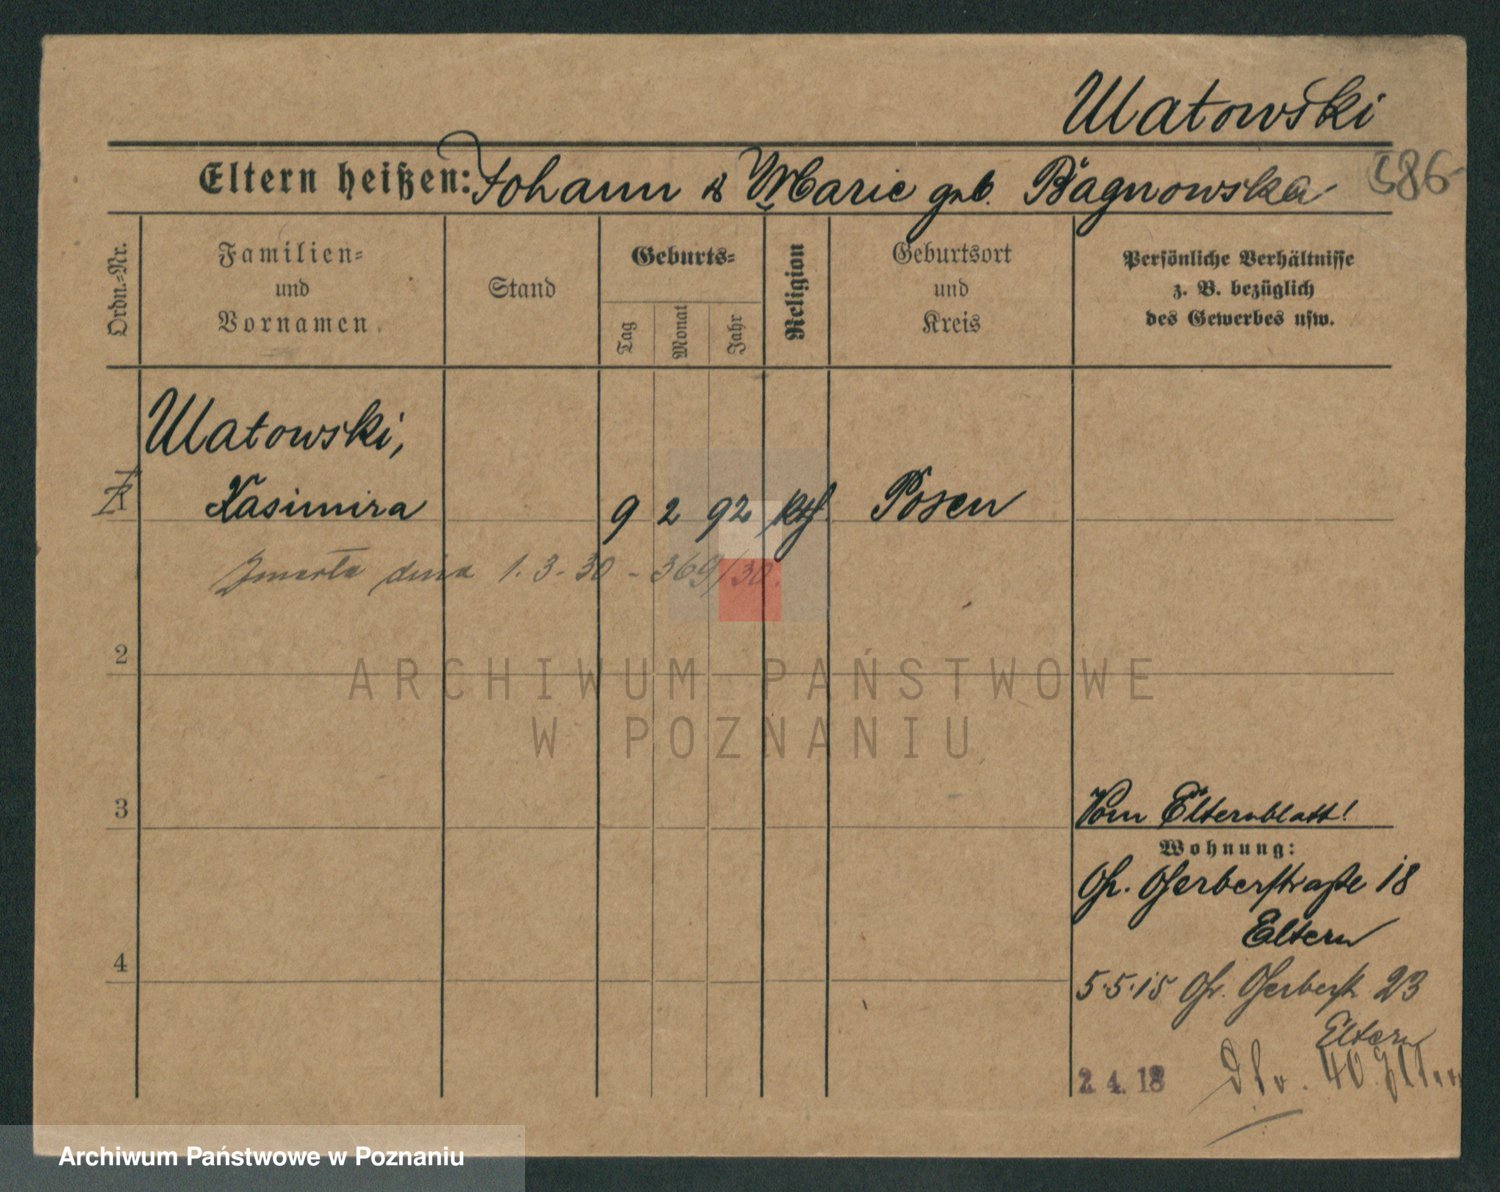 Ulatowski
Eltern heißen: Johann & Marie geb. Bagnowska
586
Ordn.-Nr.
Familien-
und
Vornamen
Stand
Geburts-
Tag
Monat
Jahr
Religion
Geburtsort
und
Kreis
Persönliche Verhältnisse
z. B. bezüglich
des Gewerbes usw.
Ulatowski,
Kasimira 9 2 92 kth Posen
Zmarła dnia 1.3.30 - 369/30.
2
ARCHIWUM PAŃSTWOWE
W POZNANIU
3
Vom Elternblatt!
Wohnung:
Gr. Gerberstraße 18
Eltern
4
5.5.15 Gr. Gerberstr 23
Eltern
2. 4. 18 40 Eltern
Archiwum Państwowe w Poznaniu